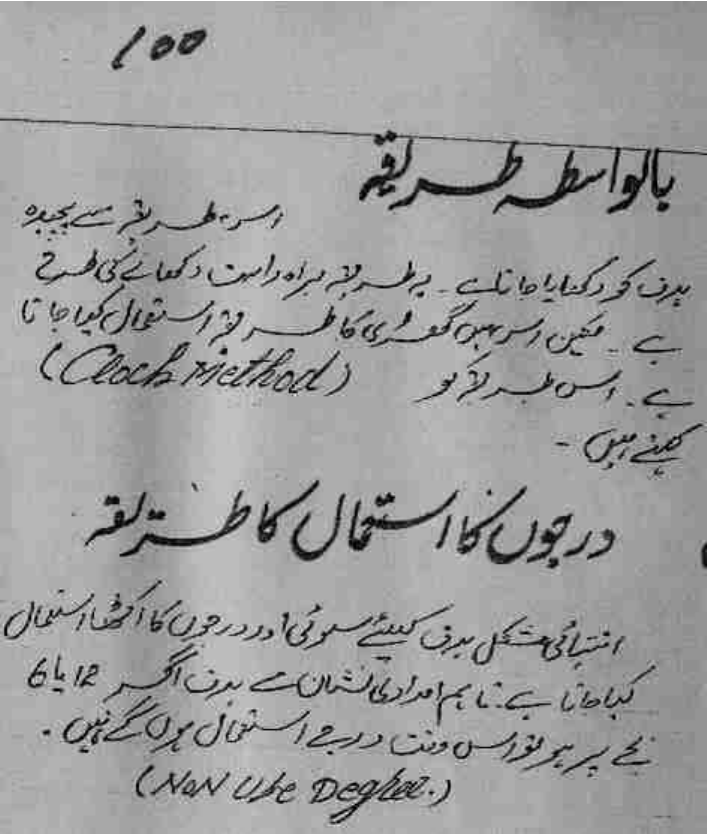 100
بالواسطہ طریقہ
اس طریقہ سے پیچیدہ
ہدف کو دکھایا جاتا ہے۔ یہ طریقہ براہ راست دکھانے کی طرح
ہے۔ لیکن اس میں گھڑی کا طریقہ استعمال کیا جاتا
ہے۔ اس طریقہ کو (Clock Method)
کہتے ہیں۔
درجوں کا استعمال کا طریقہ
انتہائی مشکل ہدف کیلئے سوئی اور درجوں کا اکٹھا استعمال
کیا جاتا ہے۔ تاہم امدادی نشان سے ہدف اگر 12 یا 6
بجے پر ہو تو اس وقت درجے استعمال ہوں گے نہیں۔
(NoN Use Degree.)